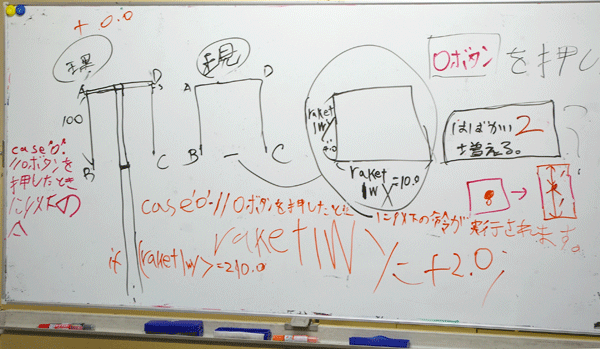 +0.0
理
現
A
D
100
B
C
A
D
B
C
case'0':
//0ボタンを
押したとき
に以下の
raket
1W
raket
1W
X=10.0
0ボタン を押し
はばがい2
増える。
case'0'://0ボタンを押したとき
に以下の命令が
実行されます。
raket1WY=+2.0;
if (raket1W>=210.0